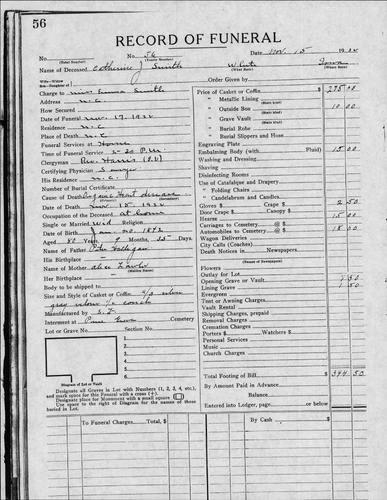 56
RECORD OF FUNERAL
No. No. 56 Date Nov. 15 1922
(Total Number) (Yearly Number)
Name of Deceased Catherine J Smith White Iowa
(What Race) (Where Born)
Wife—Widow
Son—Daughter of Order Given by
Charge to Mrs. Emma Smith
Address N.C.
How Secured
Date of Funeral Nov. 17, 1922
Residence N.C
Place of Death N.C
Funeral Services at Home
Time of Funeral Service 2-30 P.M.
Clergyman Rev. Harris (U.B)
Certifying Physician
His Residence N.C.
Number of Burial Certificate
Cause of Death Organic Heart disease
Date of Death Nov. 15 1922
Occupation of the Deceased at home
Single or Married wid Religion
Date of Birth Jan. 20, 1842
Aged 80 Years 9 Months 25 Days
Name of Father
His Birthplace
Name of Mother
(Maiden Name)
Her Birthplace
Body to be shipped to
Size and Style of Casket or Coffin
Manufactured by
Interment at Cemetery
Lot or Grave No. Section No.
1.
2.
3.
4.
5.
6.
Diagram of Lot or Vault
Designate all Graves in Lot with Numbers (1, 2, 3, 4, etc.)
and mark space for this Funeral with a cross (+).
Designate place for Monument with a small square
Use space to right of Diagram for the names of those
buried in Lot.
Price of Casket or Coffin $ 275 00
" Metallic Lining
(State kind)
" Outside Box 10 00
(State kind)
" Grave Vault
(State kind)
" Burial Robe
" Burial Slippers and Hose
Engraving Plate
Embalming Body (with Fluid) 15 00
Washing and Dressing
Shaving
Disinfecting Rooms
Use of Catafalque and Drapery
" Folding Chairs
" Candelabrum and Candles
Gloves $ Crape $ 2 50
Door Crape $ Canopy $
Hearse 15 00
Carriages to Cemetery @ $
Automobiles to Cemetery @ $ 18 00
Wagon Deliveries
City Calls (Coaches)
Death Notices in Newspapers
(Name Newspapers)
Flowers
Outlay for Lot
Opening Grave or Vault
Lining Grave 1 50
Evergreen
Tent or Awning Charges
Vault Rental
Shipping Charges, prepaid
Removal Charges
Cremation Charges
Porters $ Watchers $
Personal Services
Music
Church Charges
Total Footing of Bill $ 344 50
By Amount Paid in Advance
Balance
Entered into Ledger, page or below.
To Funeral Charges Total, $ By Cash $